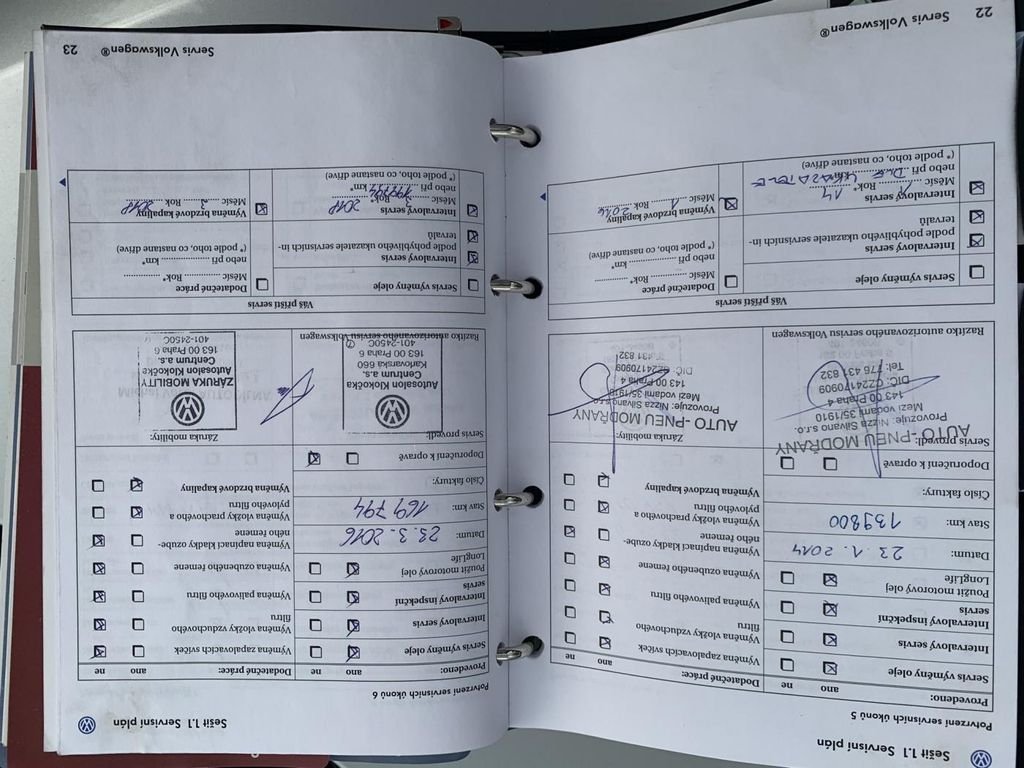 Sešit 1.1 Servisní plán
Potvrzení servisních úkonů 5
Provedeno:
ano
ne
Dodatečné práce:
ano
ne
Servis výměny oleje
Intervalový servis
Intervalový inspekční
servis
Použit motorový olej
LongLife
Datum: 23.1.2014
Stav km: 139800
Číslo faktury:
Doporučení k opravě
Výměna zapalovacích svíček
Výměna vložky vzduchového
filtru
Výměna palivového filtru
Výměna ozubeného řemene
Výměna napínací kladky ozube-
ného řemene
Výměna vložky prachového a
pylového filtru
Výměna brzdové kapaliny
Servis provedl:
AUTO - PNEU MODŘANY
Provozuje: Nizza Silvano s.r.o.
Mezi vodami 35/1910
143 00 Praha 4
DIČ: CZ24170909
Tel: 776 431 832
Razítko autorizovaného servisu Volkswagen
Záruka mobility:
AUTO - PNEU MODŘANY
Provozuje: Nizza Silvano s.r.o.
Mezi vodami 35/1910
143 00 Praha 4
DIČ: CZ24170909
431 832
Váš příští servis
Servis výměny oleje
Dodatečné práce
Měsíc Rok*
nebo při km*
(* podle toho, co nastane dříve)
Intervalový servis
podle pohyblivého ukazatele servisních in-
tervalů
Intervalový servis
Měsíc 1 Rok* 14
nebo při DLE UKAZATELE
(* podle toho, co nastane dříve)
Výměna brzdové kapaliny
Měsíc 1 Rok 2016
22
Servis Volkswagen®
Sešit 1.1 Servisní plán
Potvrzení servisních úkonů 6
Provedeno:
ano
ne
Dodatečné práce:
ano
ne
Servis výměny oleje
Intervalový servis
Intervalový inspekční
servis
Použit motorový olej
LongLife
Datum: 23.3.2016
Stav km: 169 794
Číslo faktury:
Doporučení k opravě
Výměna zapalovacích svíček
Výměna vložky vzduchového
filtru
Výměna palivového filtru
Výměna ozubeného řemene
Výměna napínací kladky ozube-
ného řemene
Výměna vložky prachového a
pylového filtru
Výměna brzdové kapaliny
Servis provedl:
Autosalon Klokočka
Centrum a.s.
Karlovarská 660
163 00 Praha 6
401-2450C
Razítko autorizovaného servisu Volkswagen
Záruka mobility:
ZÁRUKA MOBILITY
Autosalon Klokočka
Centrum a.s.
163 00 Praha 6
401-2450C
Váš příští servis
Servis výměny oleje
Dodatečné práce
Měsíc Rok*
nebo při km*
(* podle toho, co nastane dříve)
Intervalový servis
podle pohyblivého ukazatele servisních in-
tervalů
Intervalový servis
Měsíc 3 Rok* 2018
nebo při 199794 km*
(* podle toho, co nastane dříve)
Výměna brzdové kapaliny
Měsíc 3 Rok 2018
Servis Volkswagen®
23